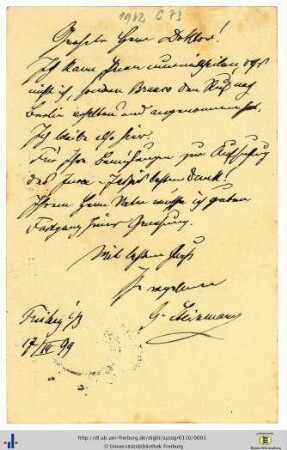 1962, C 73
Geehrter Herr Doktor!
Ich kann Ihnen nun mitteilen, dass
nicht ich, sondern Branco den Ruf nach
Berlin erhalten und angenommen hat.
Ich bleibe also hier.
Für Ihre Bemühungen zur
des Jura - besten Dank!
Ihrem Herrn Vater wünsche ich guten
Fortgang seiner Genesung.
Mit bestem Gruss
Ihr ergebener
G. Steinmann
Freiburg i/B
17/III 99
http://dl.ub.uni-freiburg.de/diglit/autogr0110/0001
© Universitätsbibliothek Freiburg